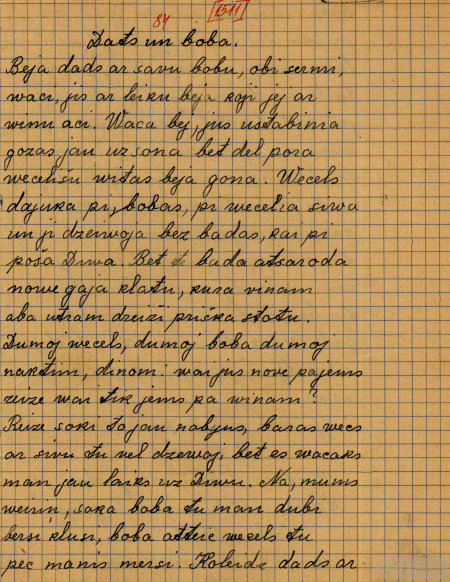 84 1511
Dats un boba.
Beja dads ar savu bobu, obi sermi,
waci, jis ar leiku beja koji jej ar
winu aci. Waca bej, jus ustabinia
gozas jau uz sona bet del pora
wecelišu witas beja gona. Wecels
dajuka pi bobas, pi wecelia siwa
un ji dzeiwoja bez badas, kai pi
poša Diwa. Bet bada atsaroda
nowe gaja klatu, kura vinam
aba utram dreizi priška stotu.
Dumoj wecels, dumoj boba dumoj
naktim, dinom: wai jus nove pajems
reize wai tik jems pa winam?
Reize soki to jau nabyus, baras wecs
ar siwu tu vel dzewoj, bet es wacaks
man jau laiks uz Diwu. Na, mums
weirin, soka boba tu man dubi
bersi klusi, boba atteic wecels tu
pec manis mersi. Koleidz dads ar